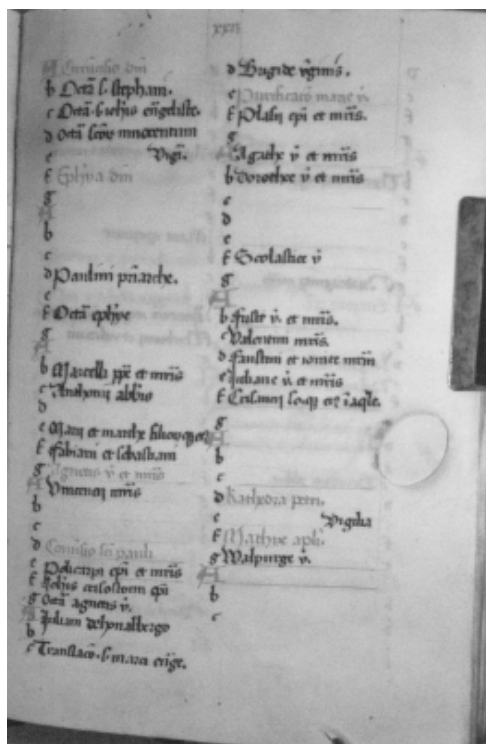 xxii
A Circūcisio dñi
b Octā s. stephani.
c Octā. s. iohīs euāgeliste.
d octā scōꝝ innocentum
e Vigi.
f Ephȳia dñi
g
b
c
d Paulini pr̄iarche.
e
f Octā ephȳe
g
A
b Marcelli ppē et mr̄is
c Anthonij abb̄is
d
e Marij et marthe
f Fabiani et sebastiani
g Agnetis v̄ et mr̄is
A Vincencij mr̄is
b
c
d Conūsio scī pauli
e Policarpi epī et mr̄is
f Ioh̄is crisostomi epī
g octā agnetis v̄.
A Iuliani
b
c Translacō. s. marci euāge.
d Brigide v̓ginis.
e Purificacō marie v̓.
f Blasij epī et mr̄is.
g
A Agathe v̄ et mr̄is
b Dorothee v̄ et mr̄is
c
d
e
f Scolastice v̄
g
A
b Fusce v̄. et mr̄is.
c Valentini mr̄is.
d Faustini et iouite mr̄m
e Iuliane v̄. et mr̄is
f
g
A
b
c
d Kathedra petri.
e Vigilia
f Mathie apl̄i.
g Walpurge v̄.
A
b
c